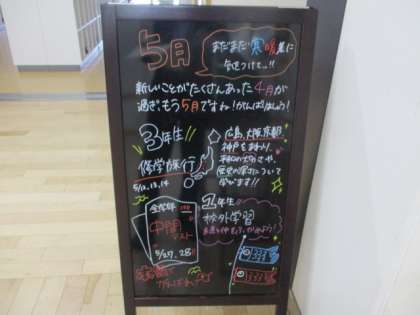 5月
まだまだ寒暖差に
気をつけてっ!!
新しいことがたくさんあった4月が
過ぎ、もう5月ですね!がんばりましょう!
3年生
修学旅行
5/12,13,14
広島、大阪、京都、
神戸をまわり、
平和の大切さや、
歴史の深さについて
学びます!!
全学年
中間
テスト
5/27,28
1年生
校外学習